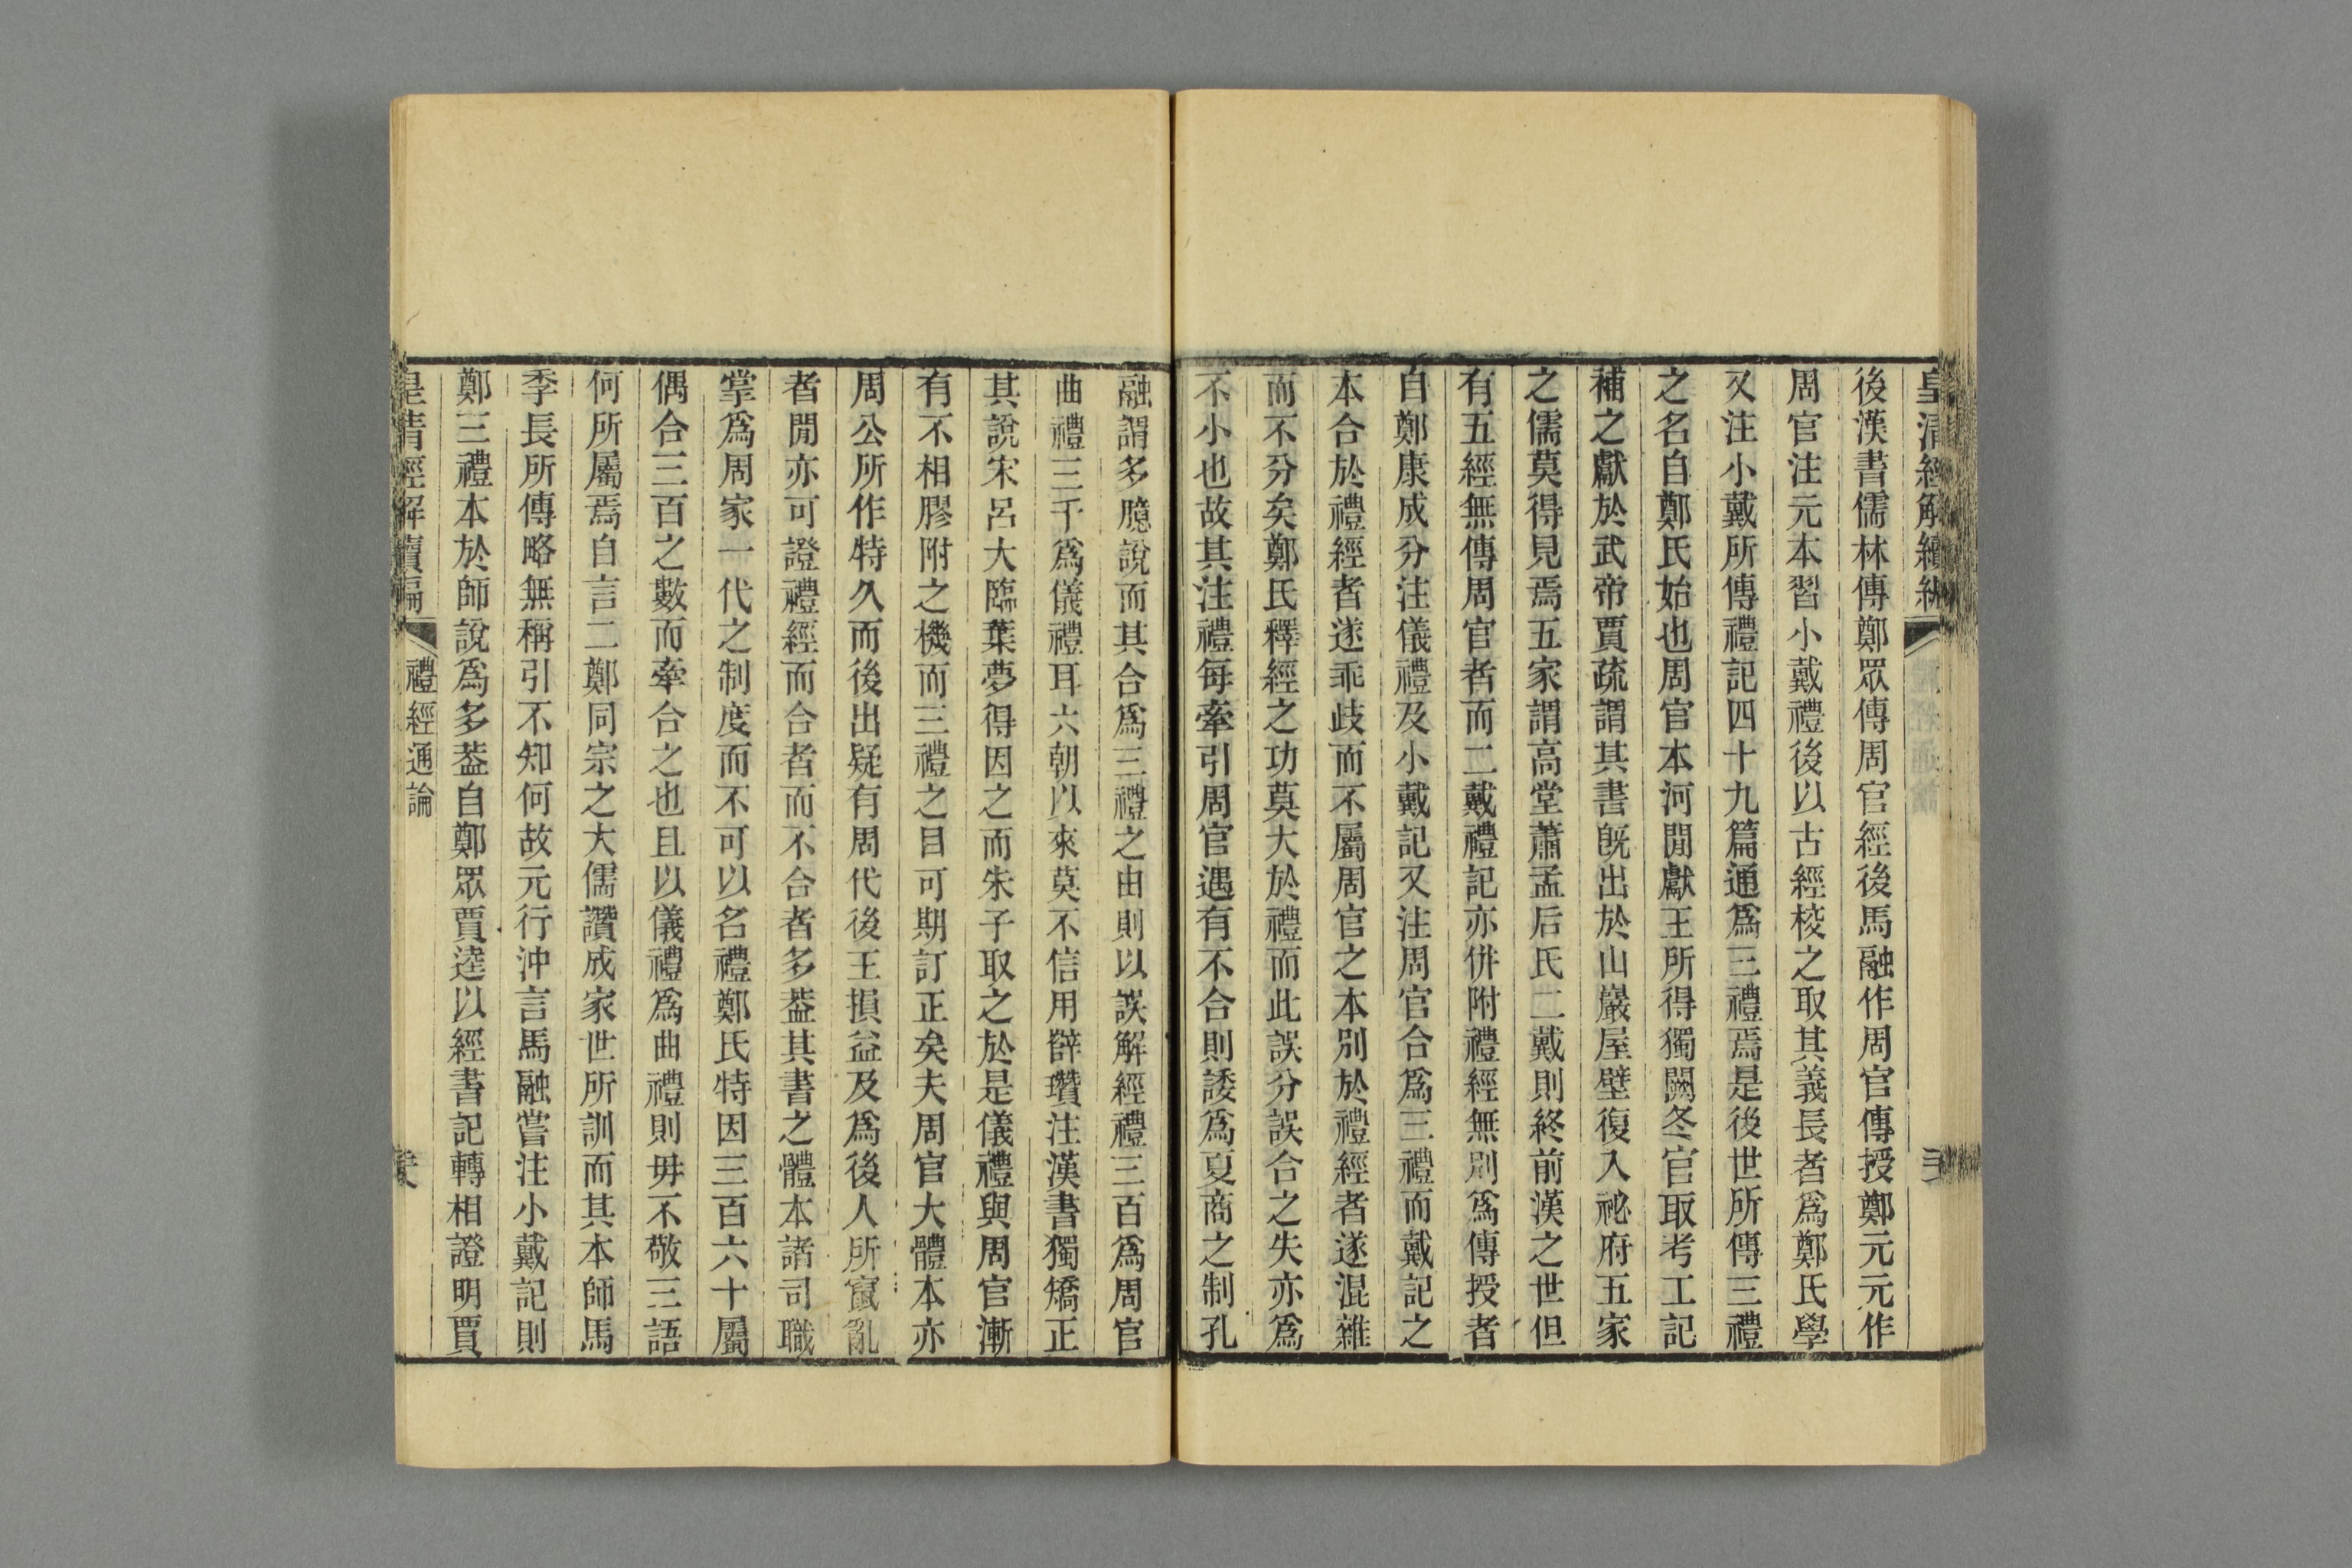 皇清經解續編
後漢書儒林傳鄭眾傳周官經後馬融作周官傳授鄭元元作
周官注元本習小戴禮後以古經校之取其義長者為鄭氏學
又注小戴所傳禮記四十九篇通為三禮焉是後世所傳三禮
之名自鄭氏始也周官本河閒獻王所得獨闕冬官取考工記
補之獻於武帝賈疏謂其書旣出於山巖屋壁復入祕府五家
之儒莫得見焉五家謂高堂蕭孟后氏二戴則終前漢之世但
有五經無傳周官者而二戴禮記亦併附禮經無別為傳授者
自鄭康成分注儀禮及小戴記又注周官合為三禮而戴記之
本合於禮經者遂乖歧而不屬周官之本別於禮經者遂混雜
而不分矣鄭氏釋經之功莫大於禮而此誤分誤合之失亦為
不小也故其注禮每牽引周官遇有不合則諉為夏商之制孔
融謂多臆說而其合為三禮之由則以誤解經禮三百為周官
曲禮三千為儀禮耳六朝以來莫不信用辥瓚注漢書獨矯正
其說宋呂大臨葉夢得因之而朱子取之於是儀禮與周官漸
有不相膠附之機而三禮之目可期訂正矣夫周官大體本亦
周公所作特久而後出疑有周代後王損益及為後人所竄亂
者閒亦可證禮經而合者而不合者多葢其書之體本諸司職
掌為周家一代之制度而不可以名禮鄭氏特因三百六十屬
偶合三百之數而牽合之也且以儀禮為曲禮則毋不敬三語
何所屬焉自言二鄭同宗之大儒讚成家世所訓而其本師馬
季長所傳略無稱引不知何故元行沖言馬融嘗注小戴記則
鄭三禮本於師說為多葢自鄭眾賈逵以經書記轉相證明賈
皇清經解續編
禮經通論